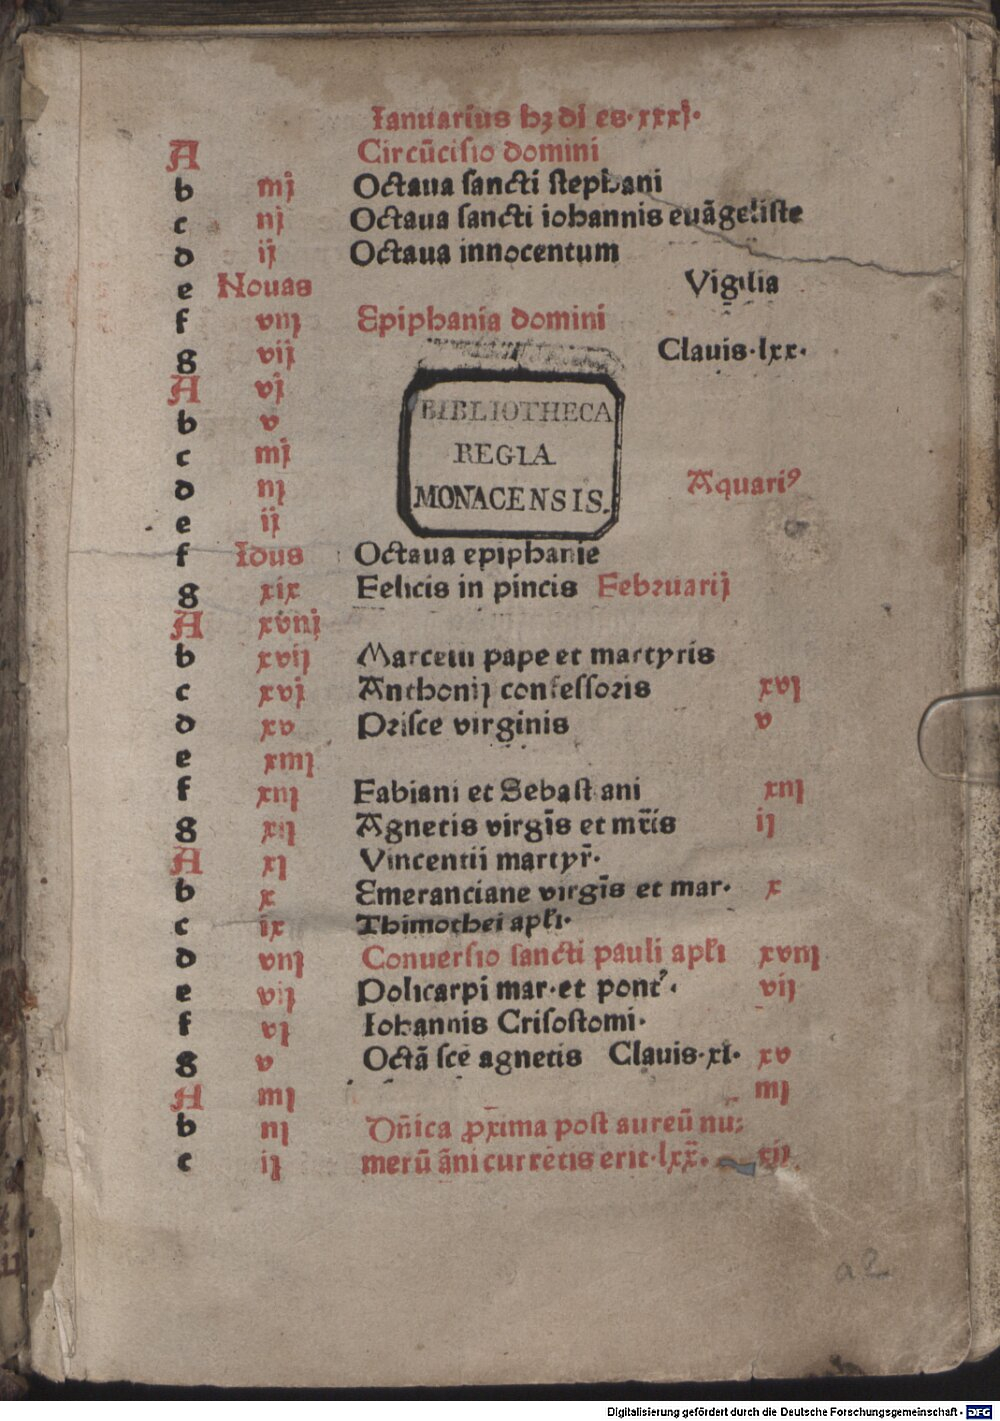 Ianuarius hꝫ di es·xxxj·
A Circūcisio domini
b iiij Octaua sancti stephani
c iij Octaua sancti iohannis euāgeliste
d ij Octaua innocentum
e Nonas Vigilia
f viij Epiphania domini
g vij Clauis·lxx·
A vj
b v
c iiij
d iij Aquariꝰ
e ij
f Idus Octaua epiphanie
g xix Felicis in pincis Februarij
A xviij
b xvij Marcelli pape et martyris
c xvj Anthonij confessoris xvj
d xv Prisce virginis v
e xiiij
f xiij Fabiani et Sebastiani xiij
g xij Agnetis virgīs et mr̄is ij
A xj Vincentii martyr̄·
b x Emeranciane virgīs et mar· x
c ix Thimothei apłi·
d viij Conuersio sancti pauli apłi xviij
e vij Policarpi mar·et pont᷒· vij
f vj Iohannis Crisostomi·
g v Octā sce agnetis Clauis·xl· xv
A iiij iiij
b iij Dn̄ica ꝓxima post aureū nu⸗
c ij merū āni currētis erit·lxx̄· xij
BIBLIOTHECA
REGIA
MONACENSIS.
a2
Digitalisierung gefördert durch die Deutsche Forschungsgemeinschaft - DFG